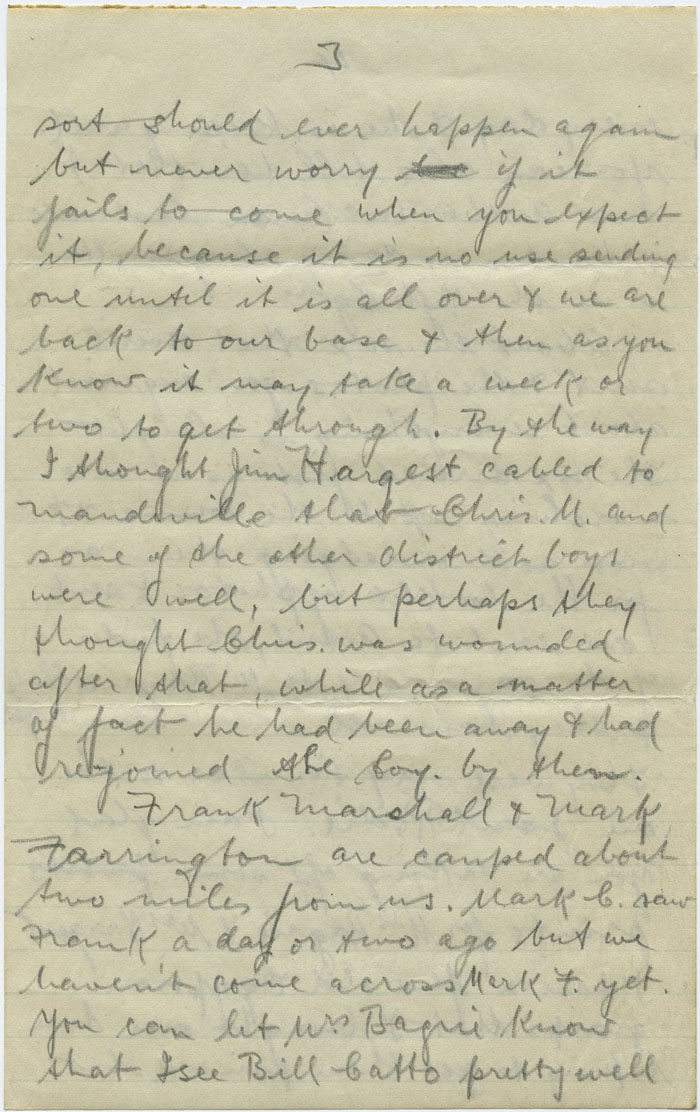 3
sort should ever happen again
but never worry if it
fails to come when you expect
it, because it is no use sending
one until it is all over & we are
back to our base & then as you
know it may take a week or
two to get through. By the way
I thought Jim Hargest cabled to
Mandeville that Chris. M. and
some of the other district boys
were well, but perhaps they
thought Chris. was wounded
after that, while as a matter
of fact he had been away & had
rejoined the Coy. by then.
Frank Marshall & Mark
Farrington are camped about
two miles from us. Mark C. saw
Frank a day or two ago but we
haven't come across Mark F. yet.
You can let Mrs Bagrie know
that I see Bill Catto pretty well